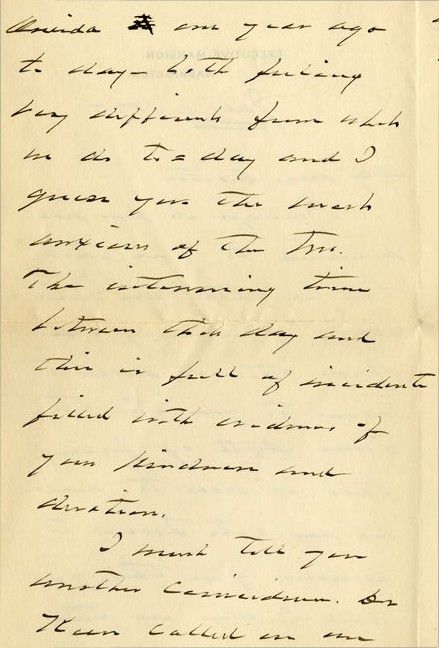 Oneida one year ago
to day - both feeling
very different from what
we do to=day and I
guess you the most
anxious of the two.
The intervening time
between that day and
this is full of incidents
filled with evidences of
your kindness and
devotion.
I must tell you
another coincidence. Dr
Keen called on me